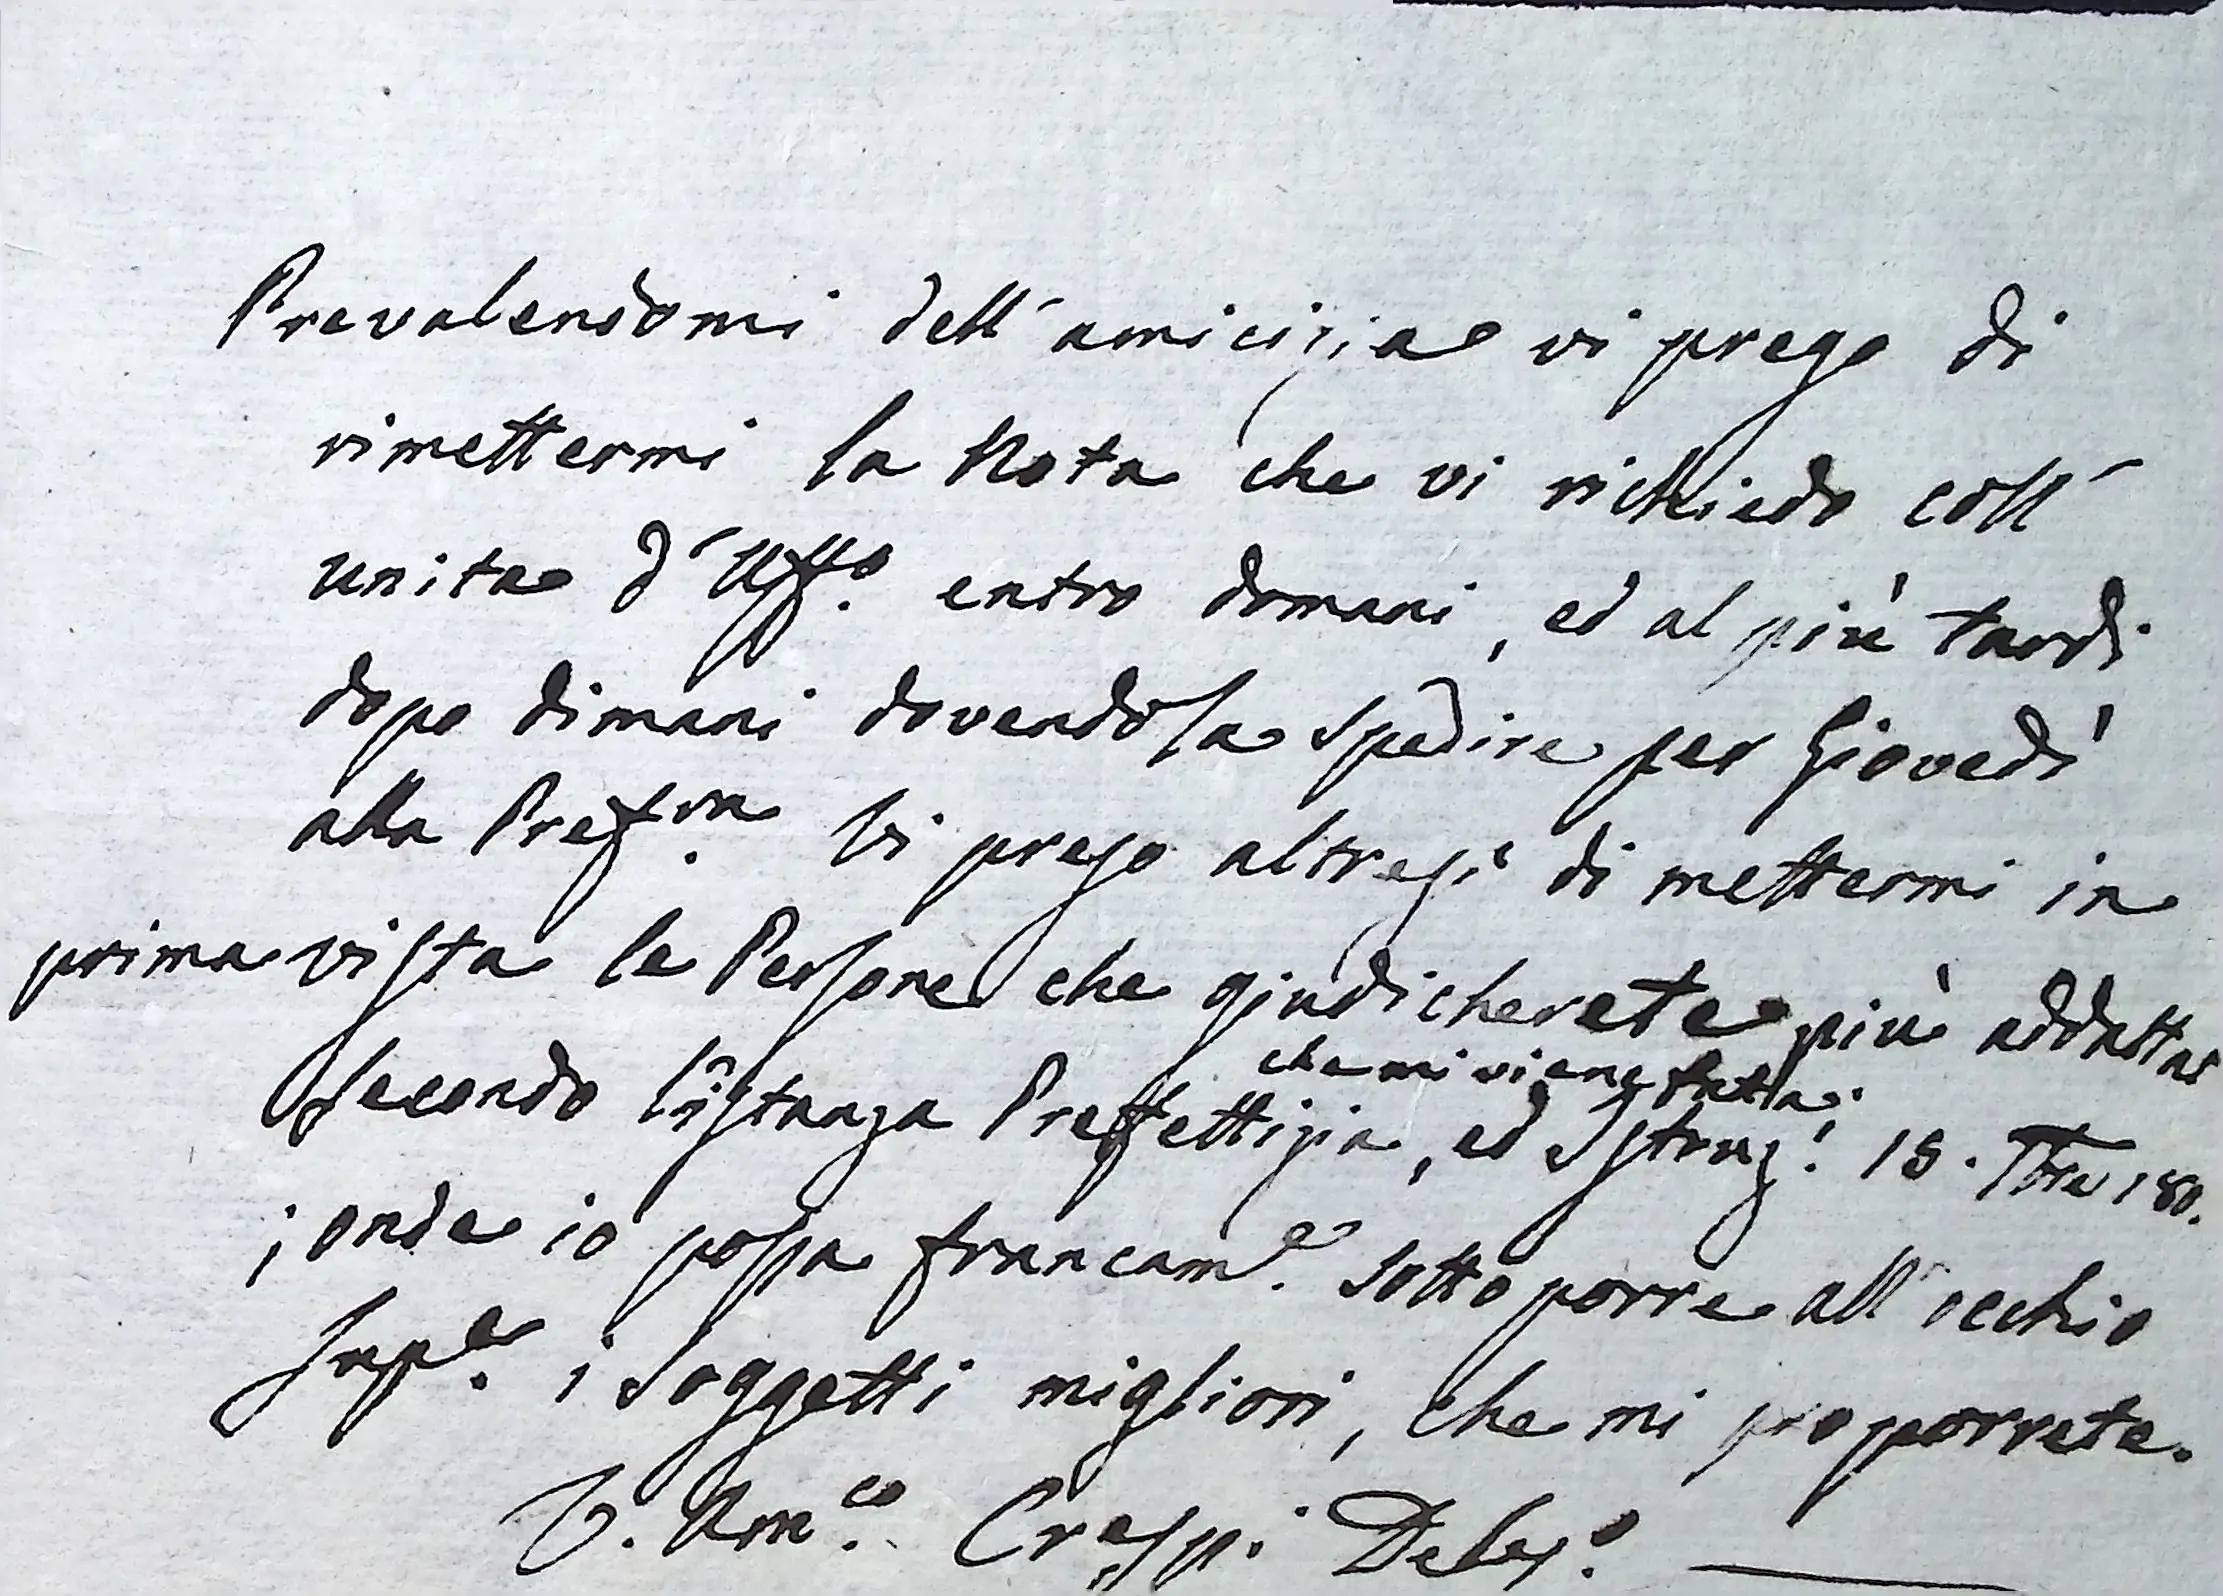 Prevalendomi dell'amicizia vi prego di
rimettermi la Nota che vi richiedo coll'
unita d'Uff.o entro domani, ed al più tardi
dopo dimani dovendola spedire per Giovedì
alla Pref.ra Vi prego altresì di mettermi in
prima vista le Persone che giudicherete più addattas
che mi viene fatta
secondo l'istanza Preffettizia, ed Istruz.i 15. 7bre 180.
; onde io possa francam.e sottoporre all'occhio
Sup.e i soggetti migliori, che mi proporrete.
V. Am.co Crespi Deleg.o